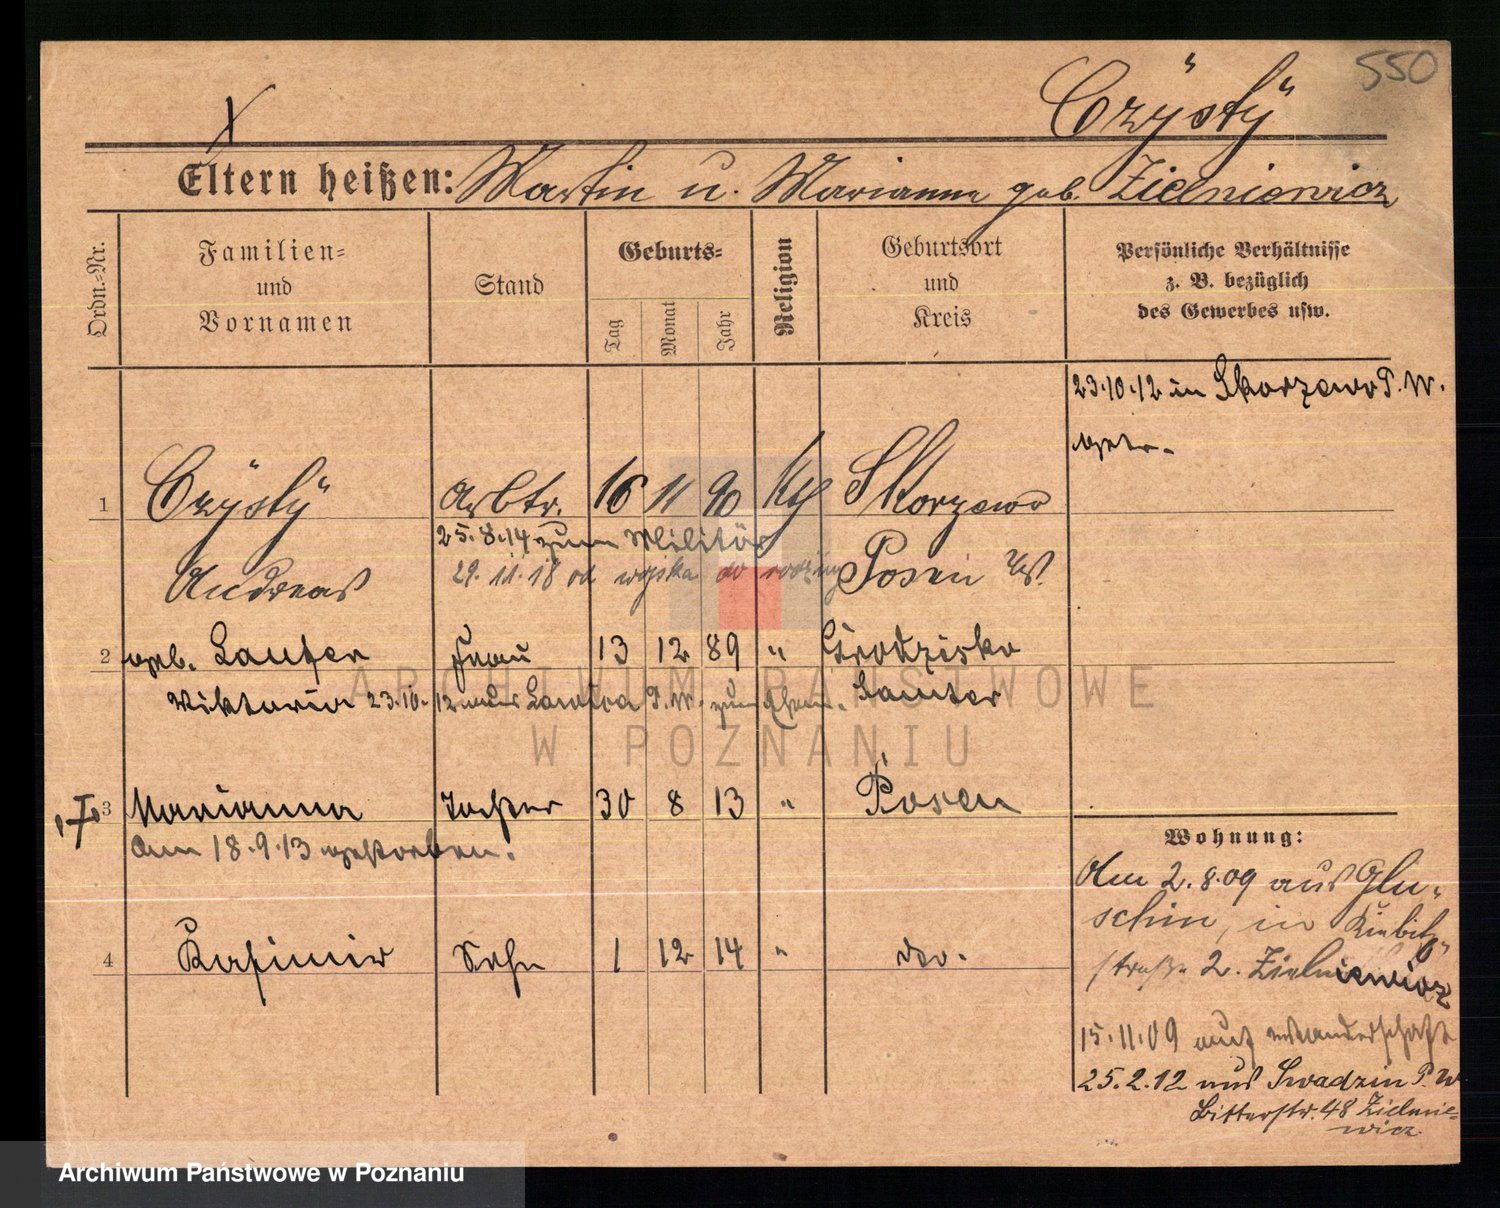 550
Czÿstÿ
Eltern heißen: Martin u. Marianna geb. Zielniewicz
Ordn.-Nr.
Familien-
und
Vornamen
Stand
Geburts-
Tag
Monat
Jahr
Religion
Geburtsort
und
Kreis
Persönliche Verhältnisse
z. B. bezüglich
des Gewerbes usw.
23.10.12 in Skorzewo P. W.
getr.
1 Czÿstÿ Arbtr. 16 11 90 kth Skorzewo
25.8.14 zum Militär
Andreas 29.11.18 od wojska do rodziny Posen W.
2 geb. Lauter Frau 13 12 89 " Grodzisko
Viktoria 23.10.12 aus P. W. zum Ehem. Lauter
3 Marianna Tochter 30 8 13 " Posen
am 18.9.13 gestorben.
Wohnung:
Am 2.8.09 aus Glu-
schin, in Kiebitz-
straße 2. Zielniewicz
4 Kasimir Sohn 1 12 14 " do.
15.11.09 auf Wanderschaft
25.2.12 aus Swadzin P. W
Bitterstr. 48 Zielnie-
wicz
ARCHIWUM PAŃSTWOWE
W POZNANIU
Archiwum Państwowe w Poznaniu